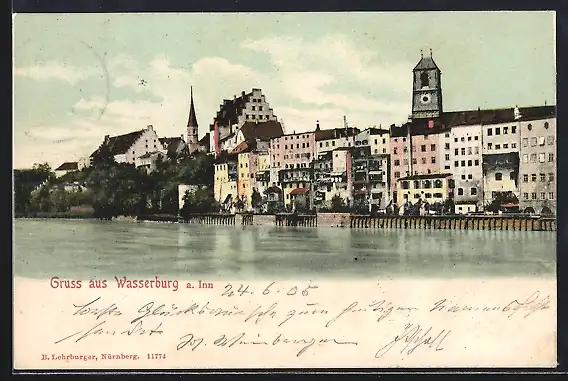 Gruss aus Wasserburg a. Inn
24.6.05
Glückwünsche zum heutigen Namensfeste
sendet Jos. Weinberger
B. Lehrburger, Nürnberg. 11774